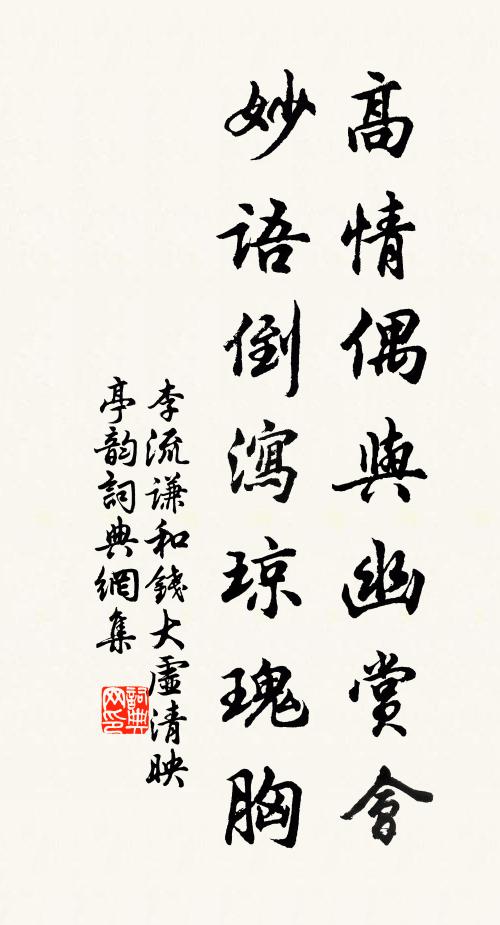 高情偶與幽賞會
妙語倒瀉琼瑰胸
李流谦和錢大虛清映
亭韵詞典網集
詞典网印